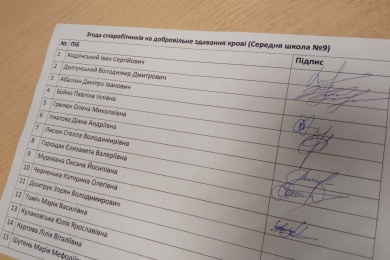 Згода співробітників на добровільне здавання крові (Середня школа №9)
№ ПІБ Підпис
1 Кодаїнський Іван Сергійович
2 Долгунський Володимир Дмитрович
3 Абалкін Дмитро Іванович
4 Бойко Павліна Іллівна
5 Грелюк Олена Миколаївна
6 Ігнатова Діана Андріївна
7 Лисюк Стелла Володимирівна
8 Горощак Єлизавета Валеріївна
9 Мурована Оксана Йосипівна
10 Чорненька Катерина Олегівна
11 Дмитрук Зорян Володимирович
12 Томич Марія Василівна
13 Кулановська Юлія Ярославівна
14 Куртова Лілія Віталіївна
15 Шутень Марія Мефодіївна